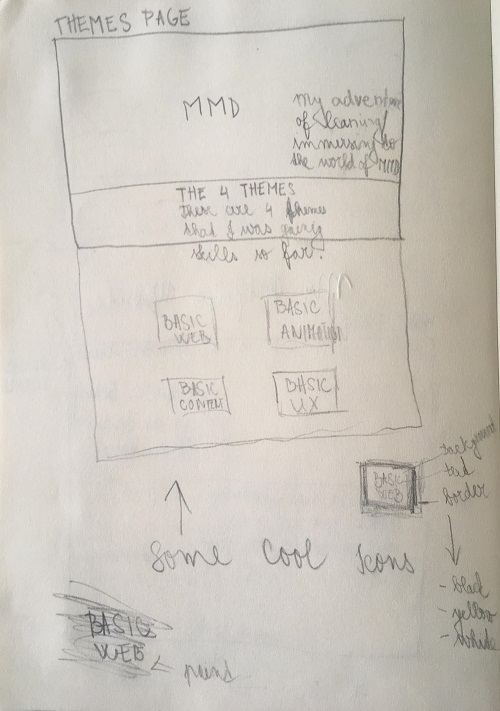 THEMES PAGE
MMD
my adventure
of learning/
immersing to
the world of MMD
THE 4 THEMES
These are 4 themes
that I was gaining
skills so far.
BASIC
WEB
BASIC
ANIMATION
BASIC
CONTENT
BASIC
UX
background
text
border
BASIC
WEB
Some cool Icons
- black
- yellow
- white
BASIC
WEB